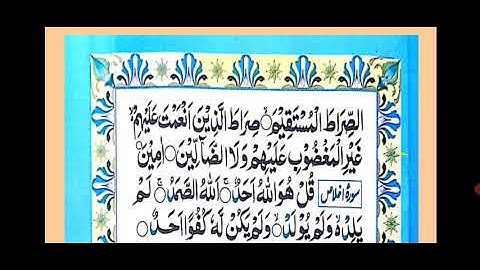 الصِّرَاطَ الْمُسْتَقِيْمَ ○ صِرَاطَ الَّذِيْنَ اَنْعَمْتَ عَلَيْهِمْ ○
غَيْرِ الْمَغْضُوْبِ عَلَيْهِمْ وَلَا الضَّآلِّيْنَ ○ اٰمِيْنَ ○
سورۂ اخلاص قُلْ هُوَ اللّٰهُ اَحَدٌ ○ اَللّٰهُ الصَّمَدُ ○ لَمْ
يَلِدْ ○ وَلَمْ يُوْلَدْ ○ وَلَمْ يَكُنْ لَّهٗ كُفُوًا اَحَدٌ ○